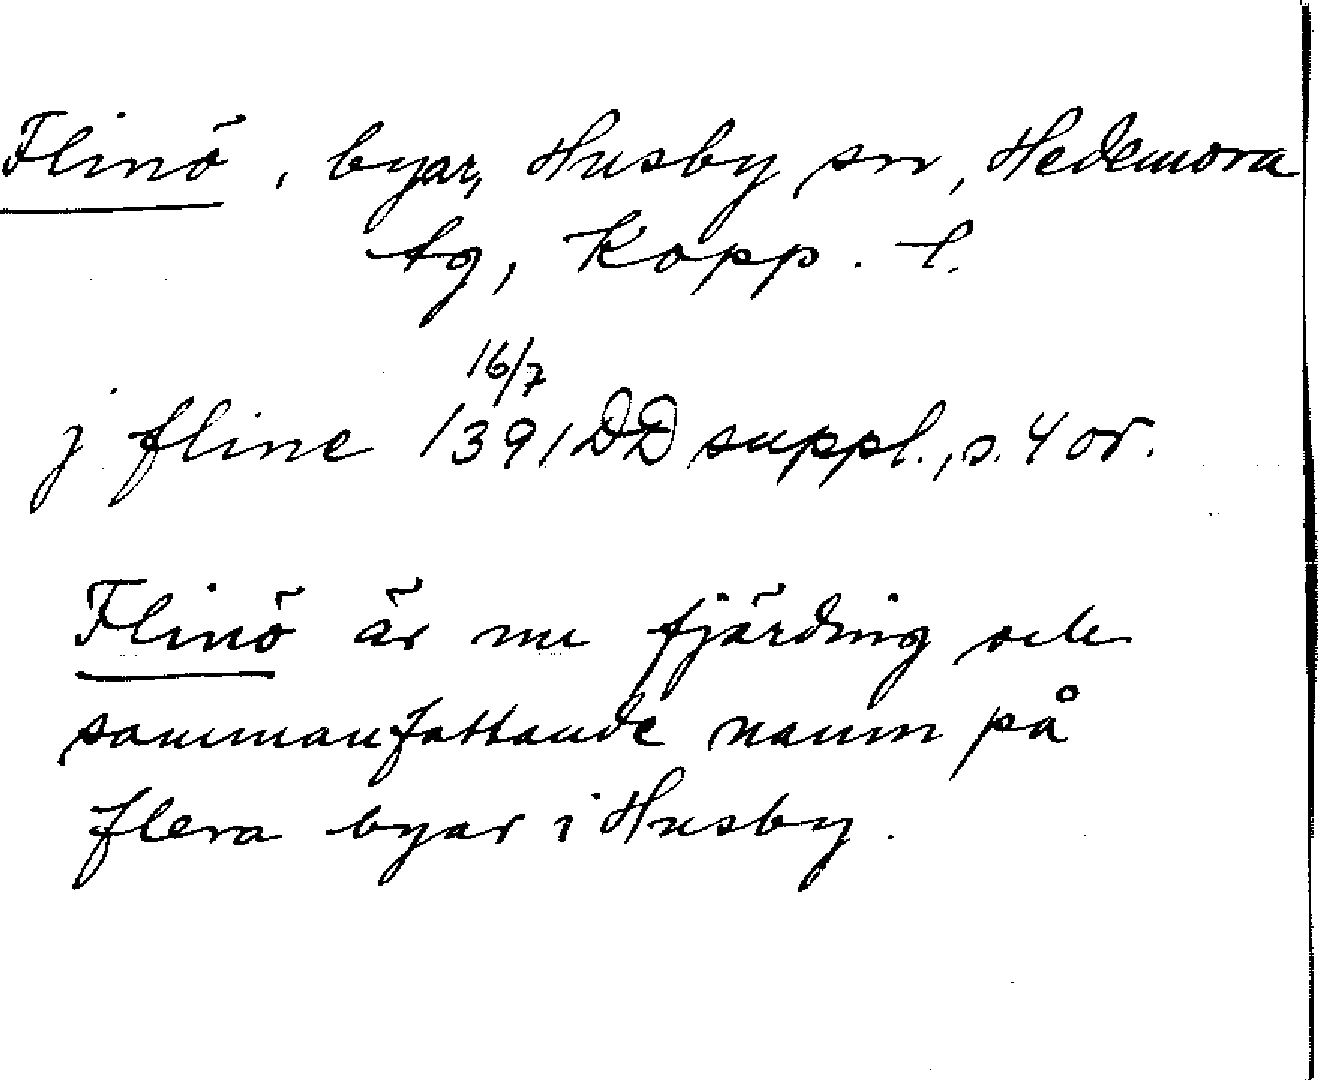 Flinö, byar, Husby sn, Hedemora
tg, Kopp. l.
16/7
j fline 1391 DD suppl., s. 4 or.
Flinö är nu fjärding och
sammanfattande namn på
flera byar i Husby.